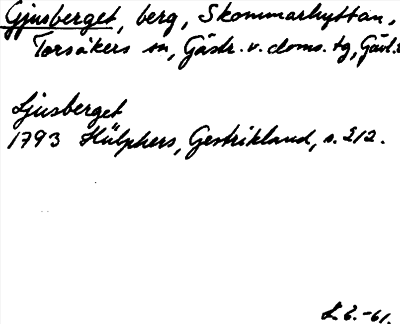 Gjusberget, berg, Skommarhyttan,
Torsåkers sn, Gästr. v. doms. tg, Gävl.
Ljusberget
1793 Hülphers, Gestrikland, s. 212.
L. E. -61.